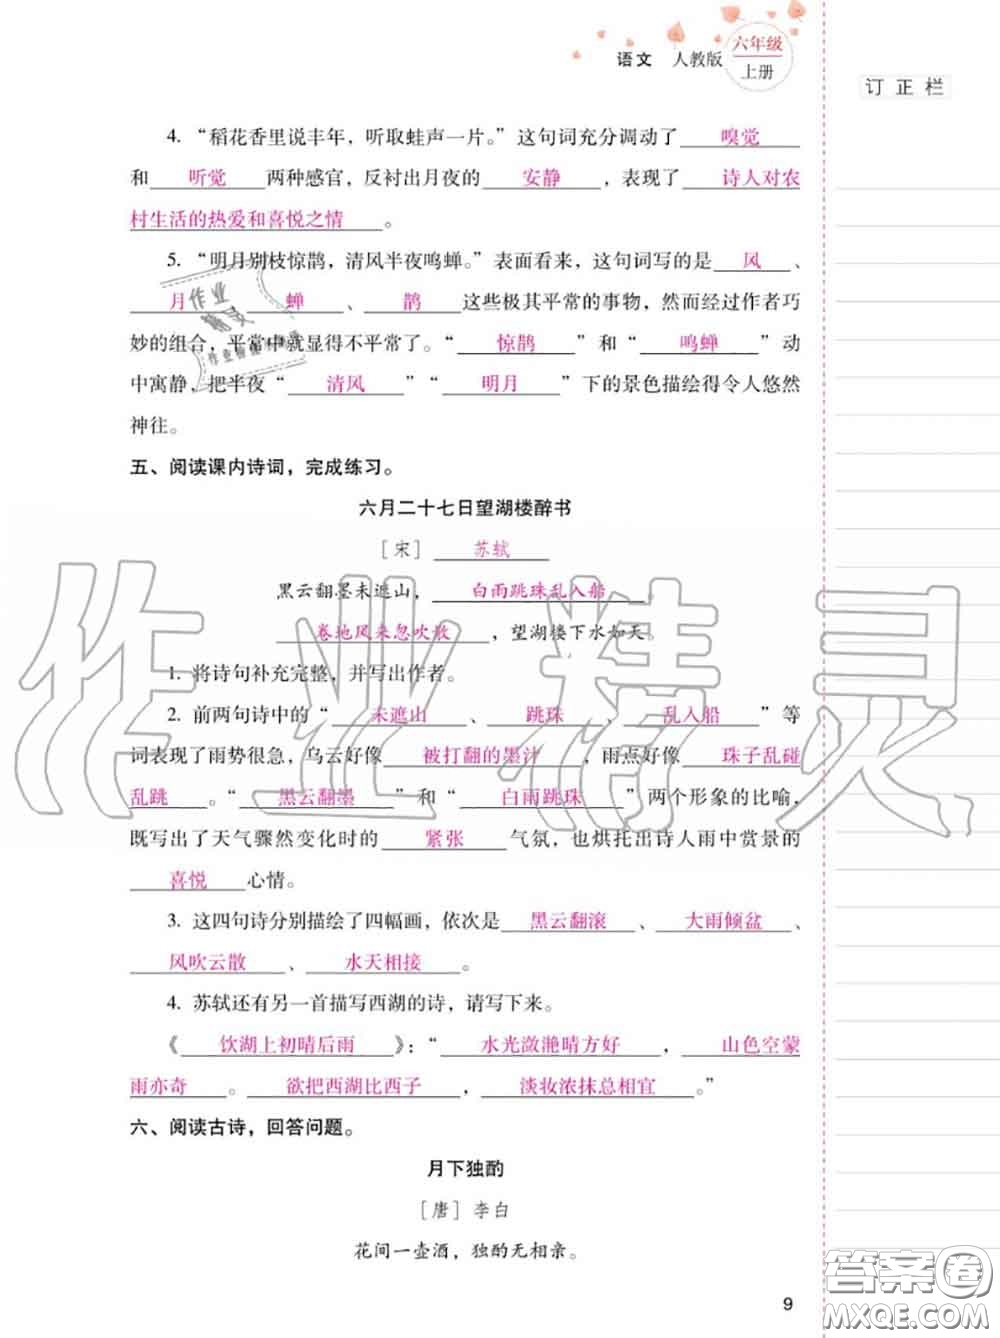 语文 人教版 六年级
上册
订 正 栏
4. “稻花香里说丰年，听取蛙声一片。”这句词充分调动了 嗅觉
和 听觉 两种感官，反衬出月夜的 安静 ，表现了 诗人对农
村生活的热爱和喜悦之情 。
5. “明月别枝惊鹊，清风半夜鸣蝉。”表面看来，这句词写的是 风 、
月 、 蝉 、 鹊 这些极其平常的事物，然而经过作者巧
妙的组合，平常中就显得不平常了。“ 惊鹊 ”和“ 鸣蝉 ”动
中寓静，把半夜“ 清风 ”“ 明月 ”下的景色描绘得令人悠然
神往。
五、阅读课内诗词，完成练习。
六月二十七日望湖楼醉书
［宋］ 苏轼
黑云翻墨未遮山， 白雨跳珠乱入船 。
卷地风来忽吹散 ，望湖楼下水如天。
1. 将诗句补充完整，并写出作者。
2. 前两句诗中的“ 未遮山 、 跳珠 、 乱入船 ”等
词表现了雨势很急，乌云好像 被打翻的墨汁 ，雨点好像 珠子乱碰
乱跳 。“ 黑云翻墨 ”和“ 白雨跳珠 ”两个形象的比喻，
既写出了天气骤然变化时的 紧张 气氛，也烘托出诗人雨中赏景的
喜悦 心情。
3. 这四句诗分别描绘了四幅画，依次是 黑云翻滚 、 大雨倾盆 、
风吹云散 、 水天相接 。
4. 苏轼还有另一首描写西湖的诗，请写下来。
《 饮湖上初晴后雨 》：“ 水光潋滟晴方好 ， 山色空蒙
雨亦奇 。 欲把西湖比西子 ， 淡妆浓抹总相宜 。”
六、阅读古诗，回答问题。
月下独酌
［唐］李白
花间一壶酒，独酌无相亲。
9
作业精灵
答案圈
MXQE.COM